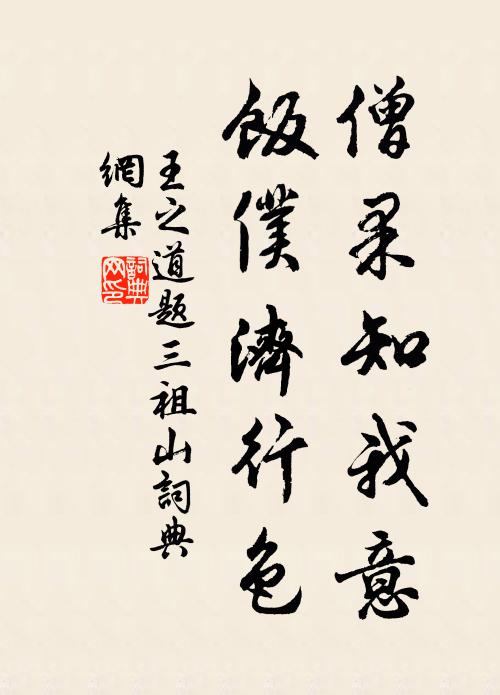 僧果知我意
飯僕濟行色
王之道題三祖山詞典
網集
詞典網印